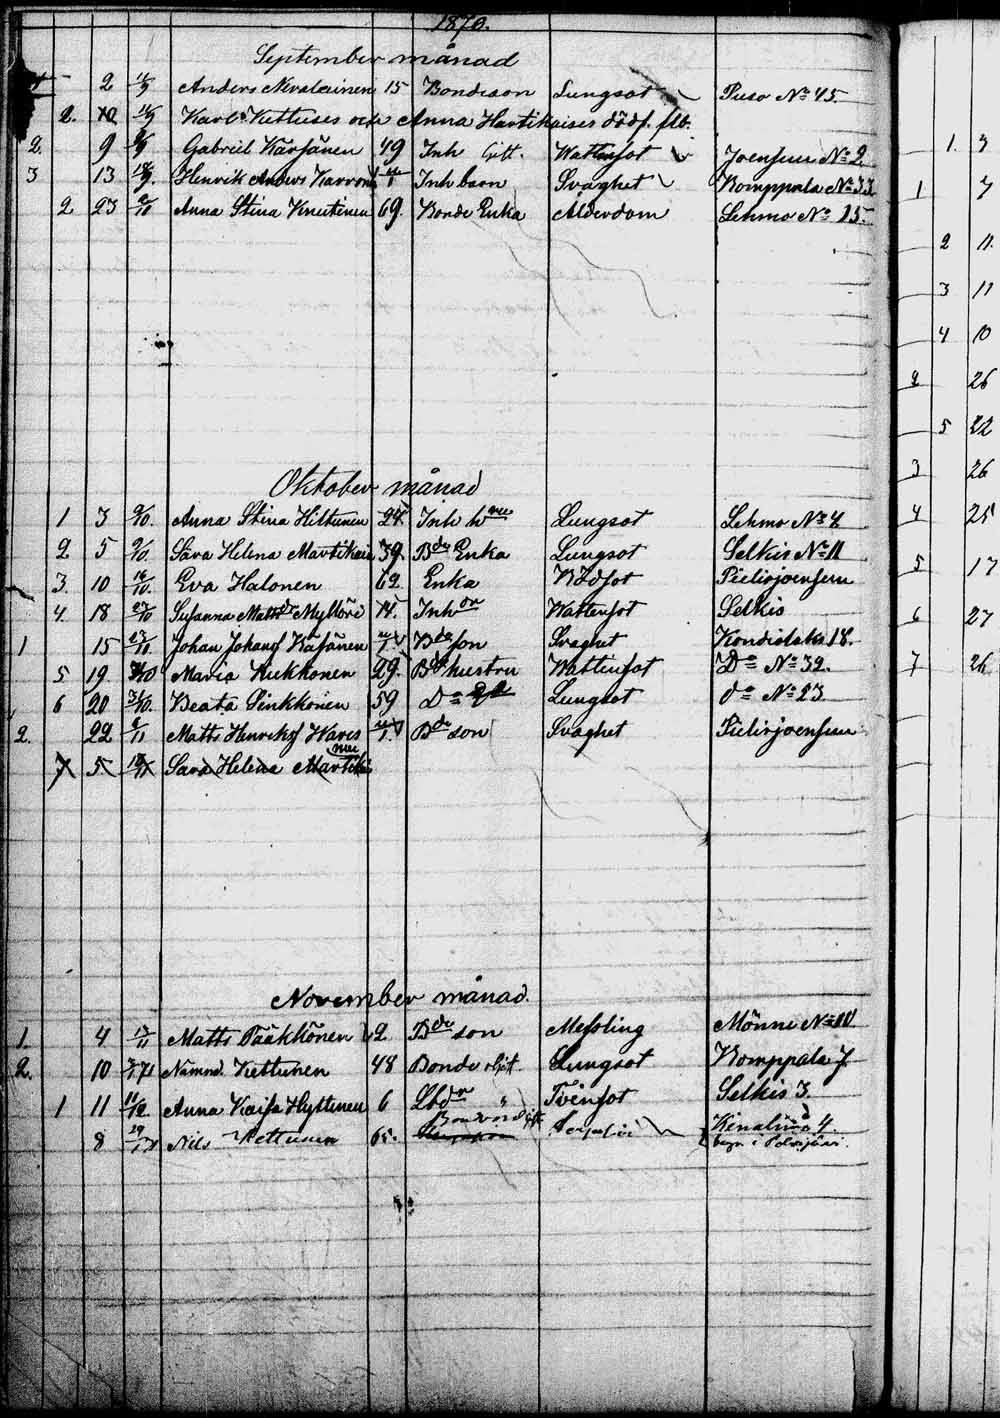 1870.
September månad
2 11/9 Anders Nevalainen 15 Bondeson Lungsot Puso No 45.
2. 10 11/9 Karl Kettuses och Anna Hartikaises dödf. flb.
2. 9 Gabriel Kärjänen 49 Inh Gift. Wattusot Joensuu No 2
3 13 18/9. Henrik Anders Karvonen Inh barn Svaghet Romppala No 33
2 23 2/10 Anna Stina Kneutinen 69. Bonde Enka Ålderdom Lehmo No 15.
Oktober månad
1 3 9/10. Anna Stina Hiltunen 24. Inh hru Lungsot Lehmo No 4
2. 5 9/10. Sara Helena Martikai 39. Bde Enka Lungsot Selkis No 11
3. 10 16/10. Eva Halonen 62. Enka Rödsot Pielisjoensuu
4. 18 23/10 Susanna Mattsdr 14. Inh dr Wattusot Selkis
1 15 23/10. Johan Johansf Käsänen Bde son Svaghet Kondiolaks 18.
5 19 30/10 Maria Kukkonen 29. Bde hustru Wattusot Do No 32.
6 20 30/10. Beata Sinkkonen 59 Do Lungsot do No 23
2. 22 6/11 Matts Henriksf Hares Bde son Svaghet Pielisjoensuu
7 5 Sara Helena Martikainen
November månad.
1. 4 13/11 Matts Pääkkönen 2. Bde son Messling Mönni No 10
2. 10 Nämnd. Kettunen 48 Bonde gift. Lungsot Romppala 7.
1 11 11/12 Anna Kaisa Hyttinen 6 Lbdr Tvinsot Selkis 3.
8 29 Nils Kettunen 65. Kinalina 4.
begr i Polvijärvi.
1. 3
1 7
2 11.
3 11
4 10
2 26
5 22
3 26
4 25
5 17
6 27
7 26